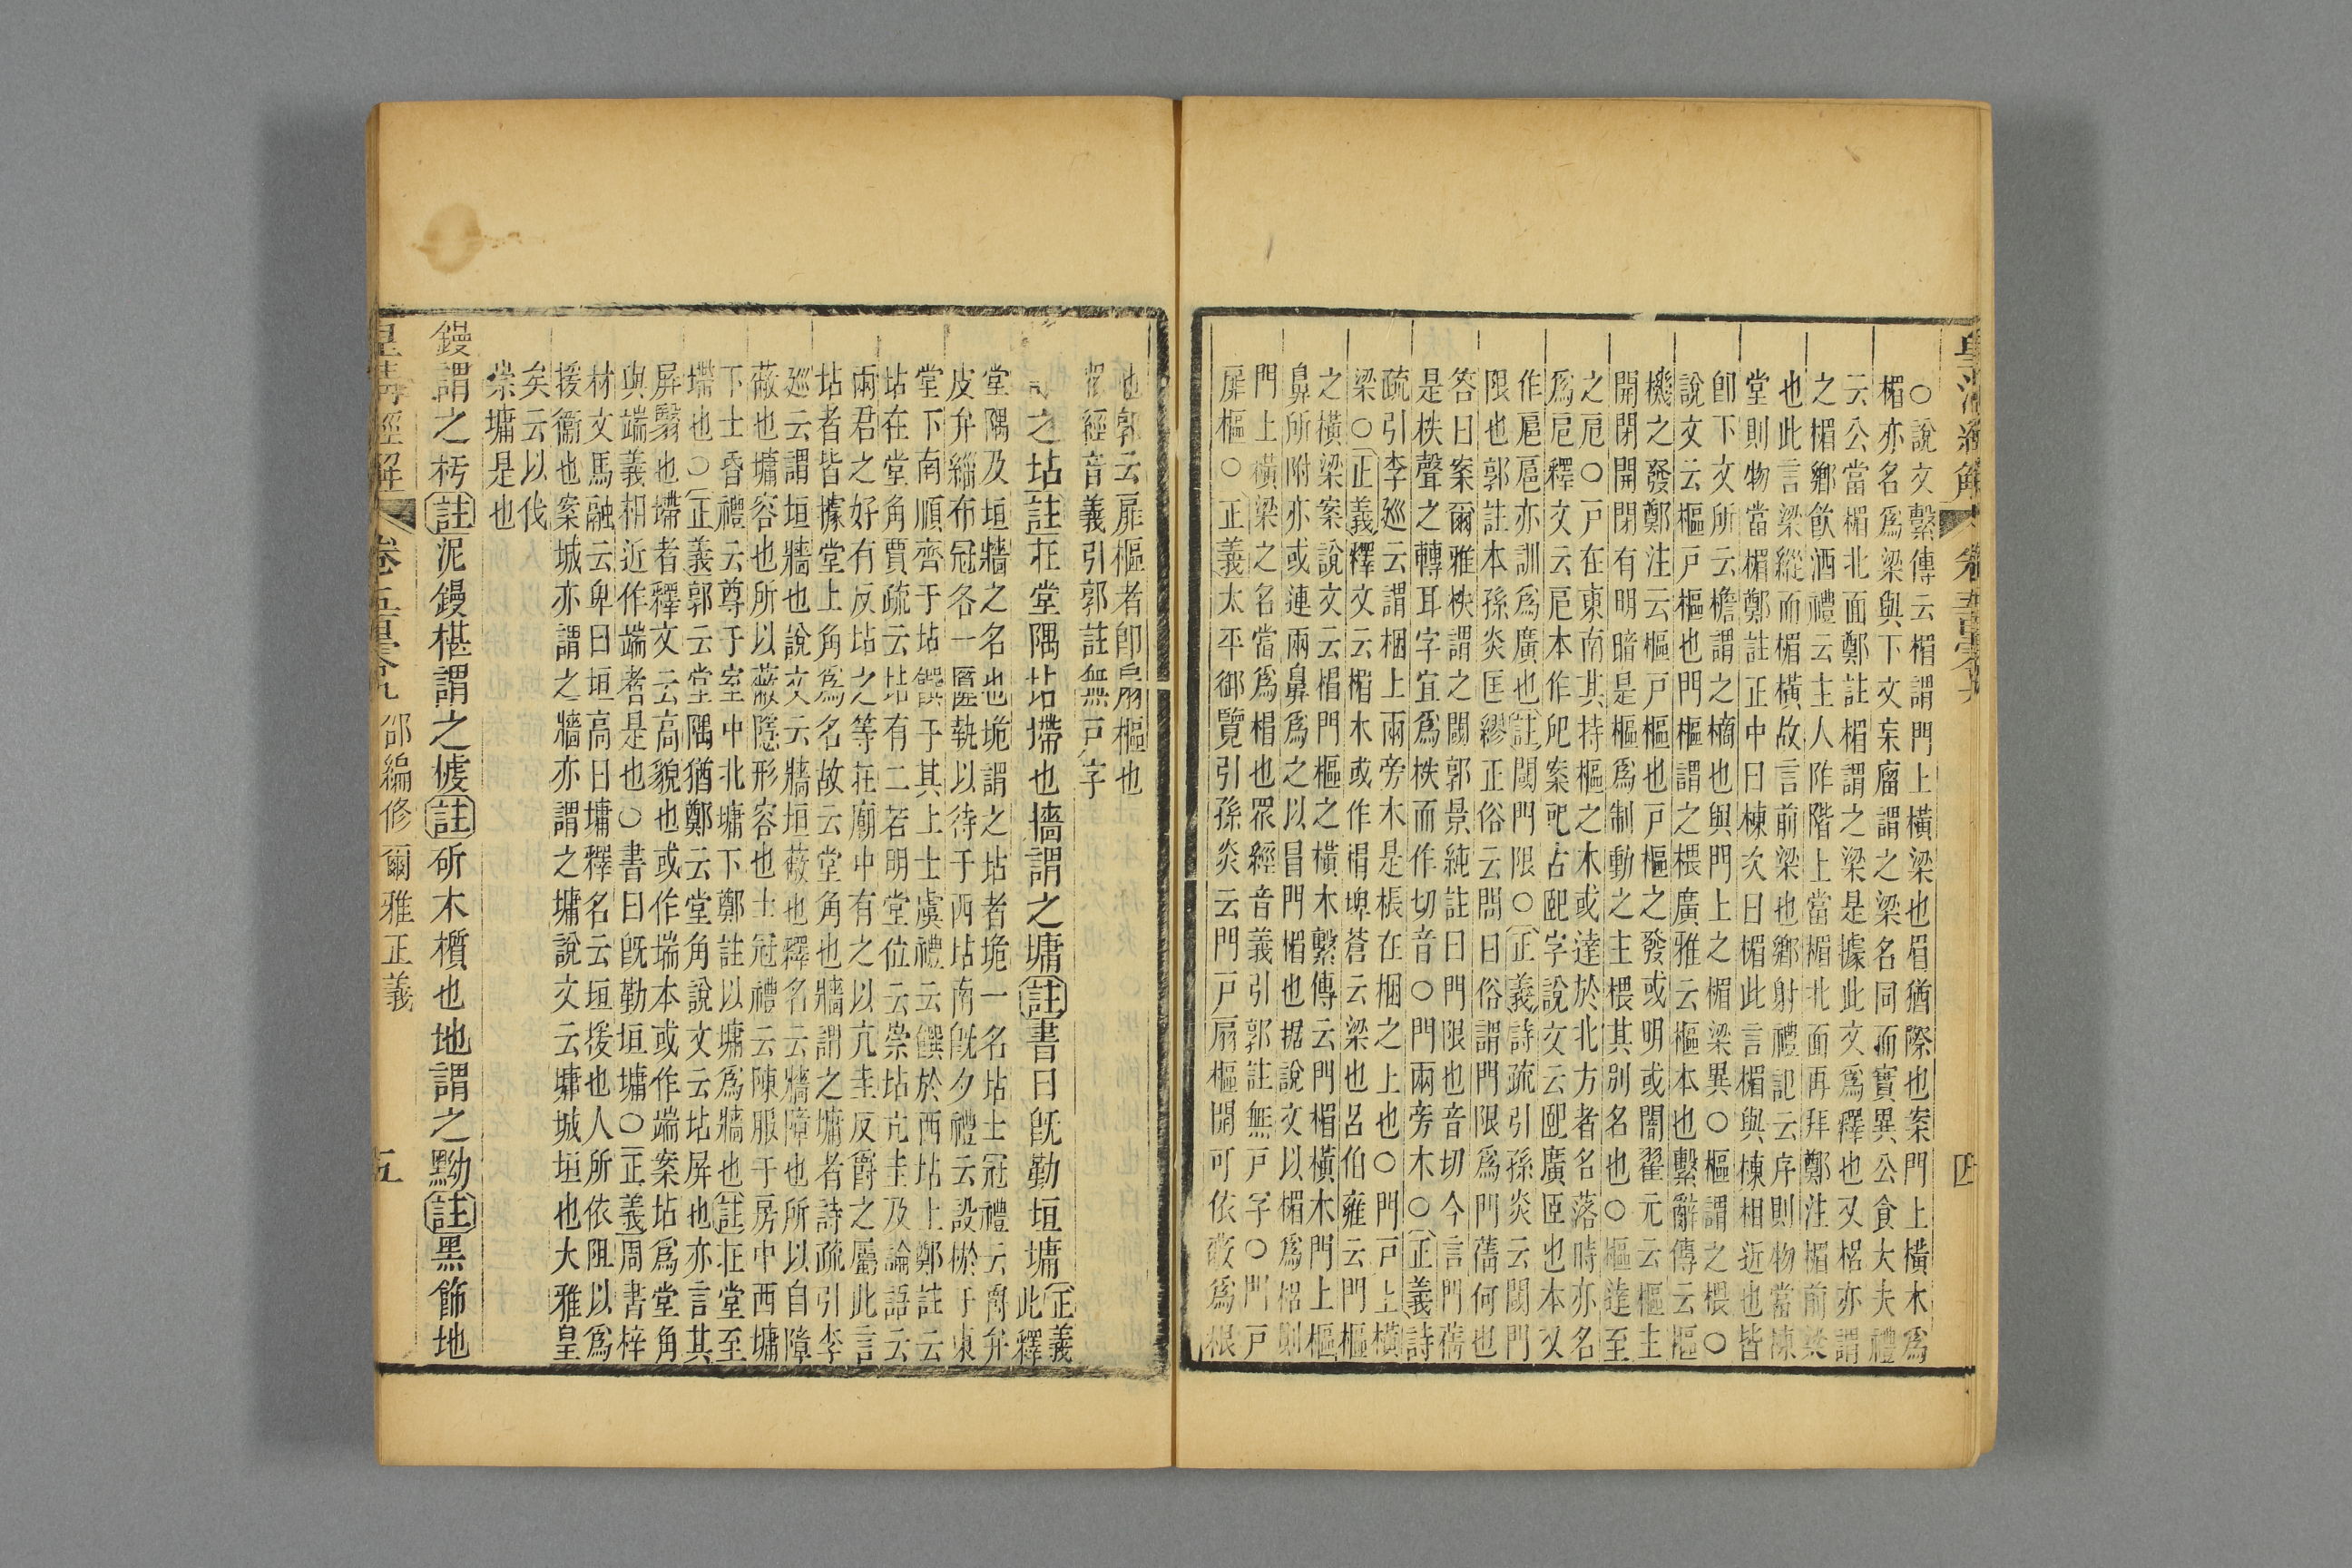 皇清經解
卷五百零九
四
○說文繫傳云楣謂門上橫梁也眉猶際也案門上橫木爲
楣亦名爲梁與下文杗廇謂之梁名同而實異公食大夫禮
云公當楣北面鄭註楣謂之梁是據此文爲釋也又梠亦謂
之楣鄉飮酒禮云主人阼階上當楣北面再拜鄭注楣前梁
也此言梁縱而楣橫故言前梁也鄉射禮記云序則物當棟
堂則物當楣鄭註正中曰棟次曰楣此言楣與棟相近也皆
卽下文所云檐謂之樀也與門上之楣梁異○樞謂之椳○
說文云樞戸樞也門樞謂之椳廣雅云樞本也繫辭傳云樞
機之發鄭注云樞戸樞也戸樞之發或明或闇翟元云樞主
開閉開閉有明暗是樞爲制動之主椳其別名也○樞達至
之戹○戸在東南其持樞之木或達於北方者名落時亦名
爲戹釋文云戹本作戺案戺古巸字說文云巸廣臣也本又
作扈扈亦訓爲廣也註閾門限○正義詩疏引孫炎云閾門
限也郭註本孫炎匡繆正俗云問曰俗謂門限爲門蒨何也
答曰案爾雅柣謂之閾郭景純註曰門限也音切今言門蒨
是柣聲之轉耳字宜爲柣而作切音○門兩旁木○正義詩
疏引李廵云謂梱上兩旁木是棖在梱之上也○門戸上橫
梁○正義釋文云楣木或作楣埤蒼云梁也呂伯雍云門樞
之橫梁案說文云楣門樞之橫木繫傳云門楣橫木門上樞
鼻所附亦或連兩鼻爲之以冒門楣也据說文以楣爲梠則
門上橫梁之名當爲楣也眾經音義引郭註無戸字○門戸
扉樞○正義太平御覽引孫炎云門戸扇樞開可依蔽爲根
也郭云扉樞者卽扇樞也
眾經音義引郭註無戸字
之坫註在堂隅坫墆也牆謂之墉註書曰旣勤垣墉正義此釋
堂隅及垣牆之名也垝謂之坫者垝一名坫士冠禮云爵弁
皮弁緇布冠各一匴執以待于西坫南旣夕禮云設棜于東
堂下南順齊于坫饌于其上士虞禮云饌於西坫上鄭註云
坫在堂角賈疏云坫有二若明堂位云崇坫亢圭及論語云
兩君之好有反坫之等在廟中有之以亢圭反爵之屬此言
坫者皆據堂上角爲名故云堂角也牆謂之墉者詩疏引李
廵云謂垣牆也說文云牆垣蔽也釋名云牆障也所以自障
蔽也墉容也所以蔽隱形容也士冠禮云陳服于房中西墉
下士昏禮云尊于室中北墉下鄭註以墉爲牆也註在堂至
墆也○正義郭云堂隅猶鄭云堂角說文云坫屏也亦言其
屏翳也墆者釋文云高貌也或作墆本或作端案坫爲堂角
與端義相近作端者是也○書曰旣勤垣墉○正義周書梓
材文馬融云卑曰垣高曰墉釋名云垣援也人所依阻以爲
援衞也案城亦謂之牆亦謂之墉說文云墉城垣也大雅皇
矣云以伐
崇墉是也
鏝謂之杇註泥鏝椹謂之榩註斫木櫍也地謂之黝註黑飾地
皇清經解
卷五百零九
邵編修爾雅正義
五